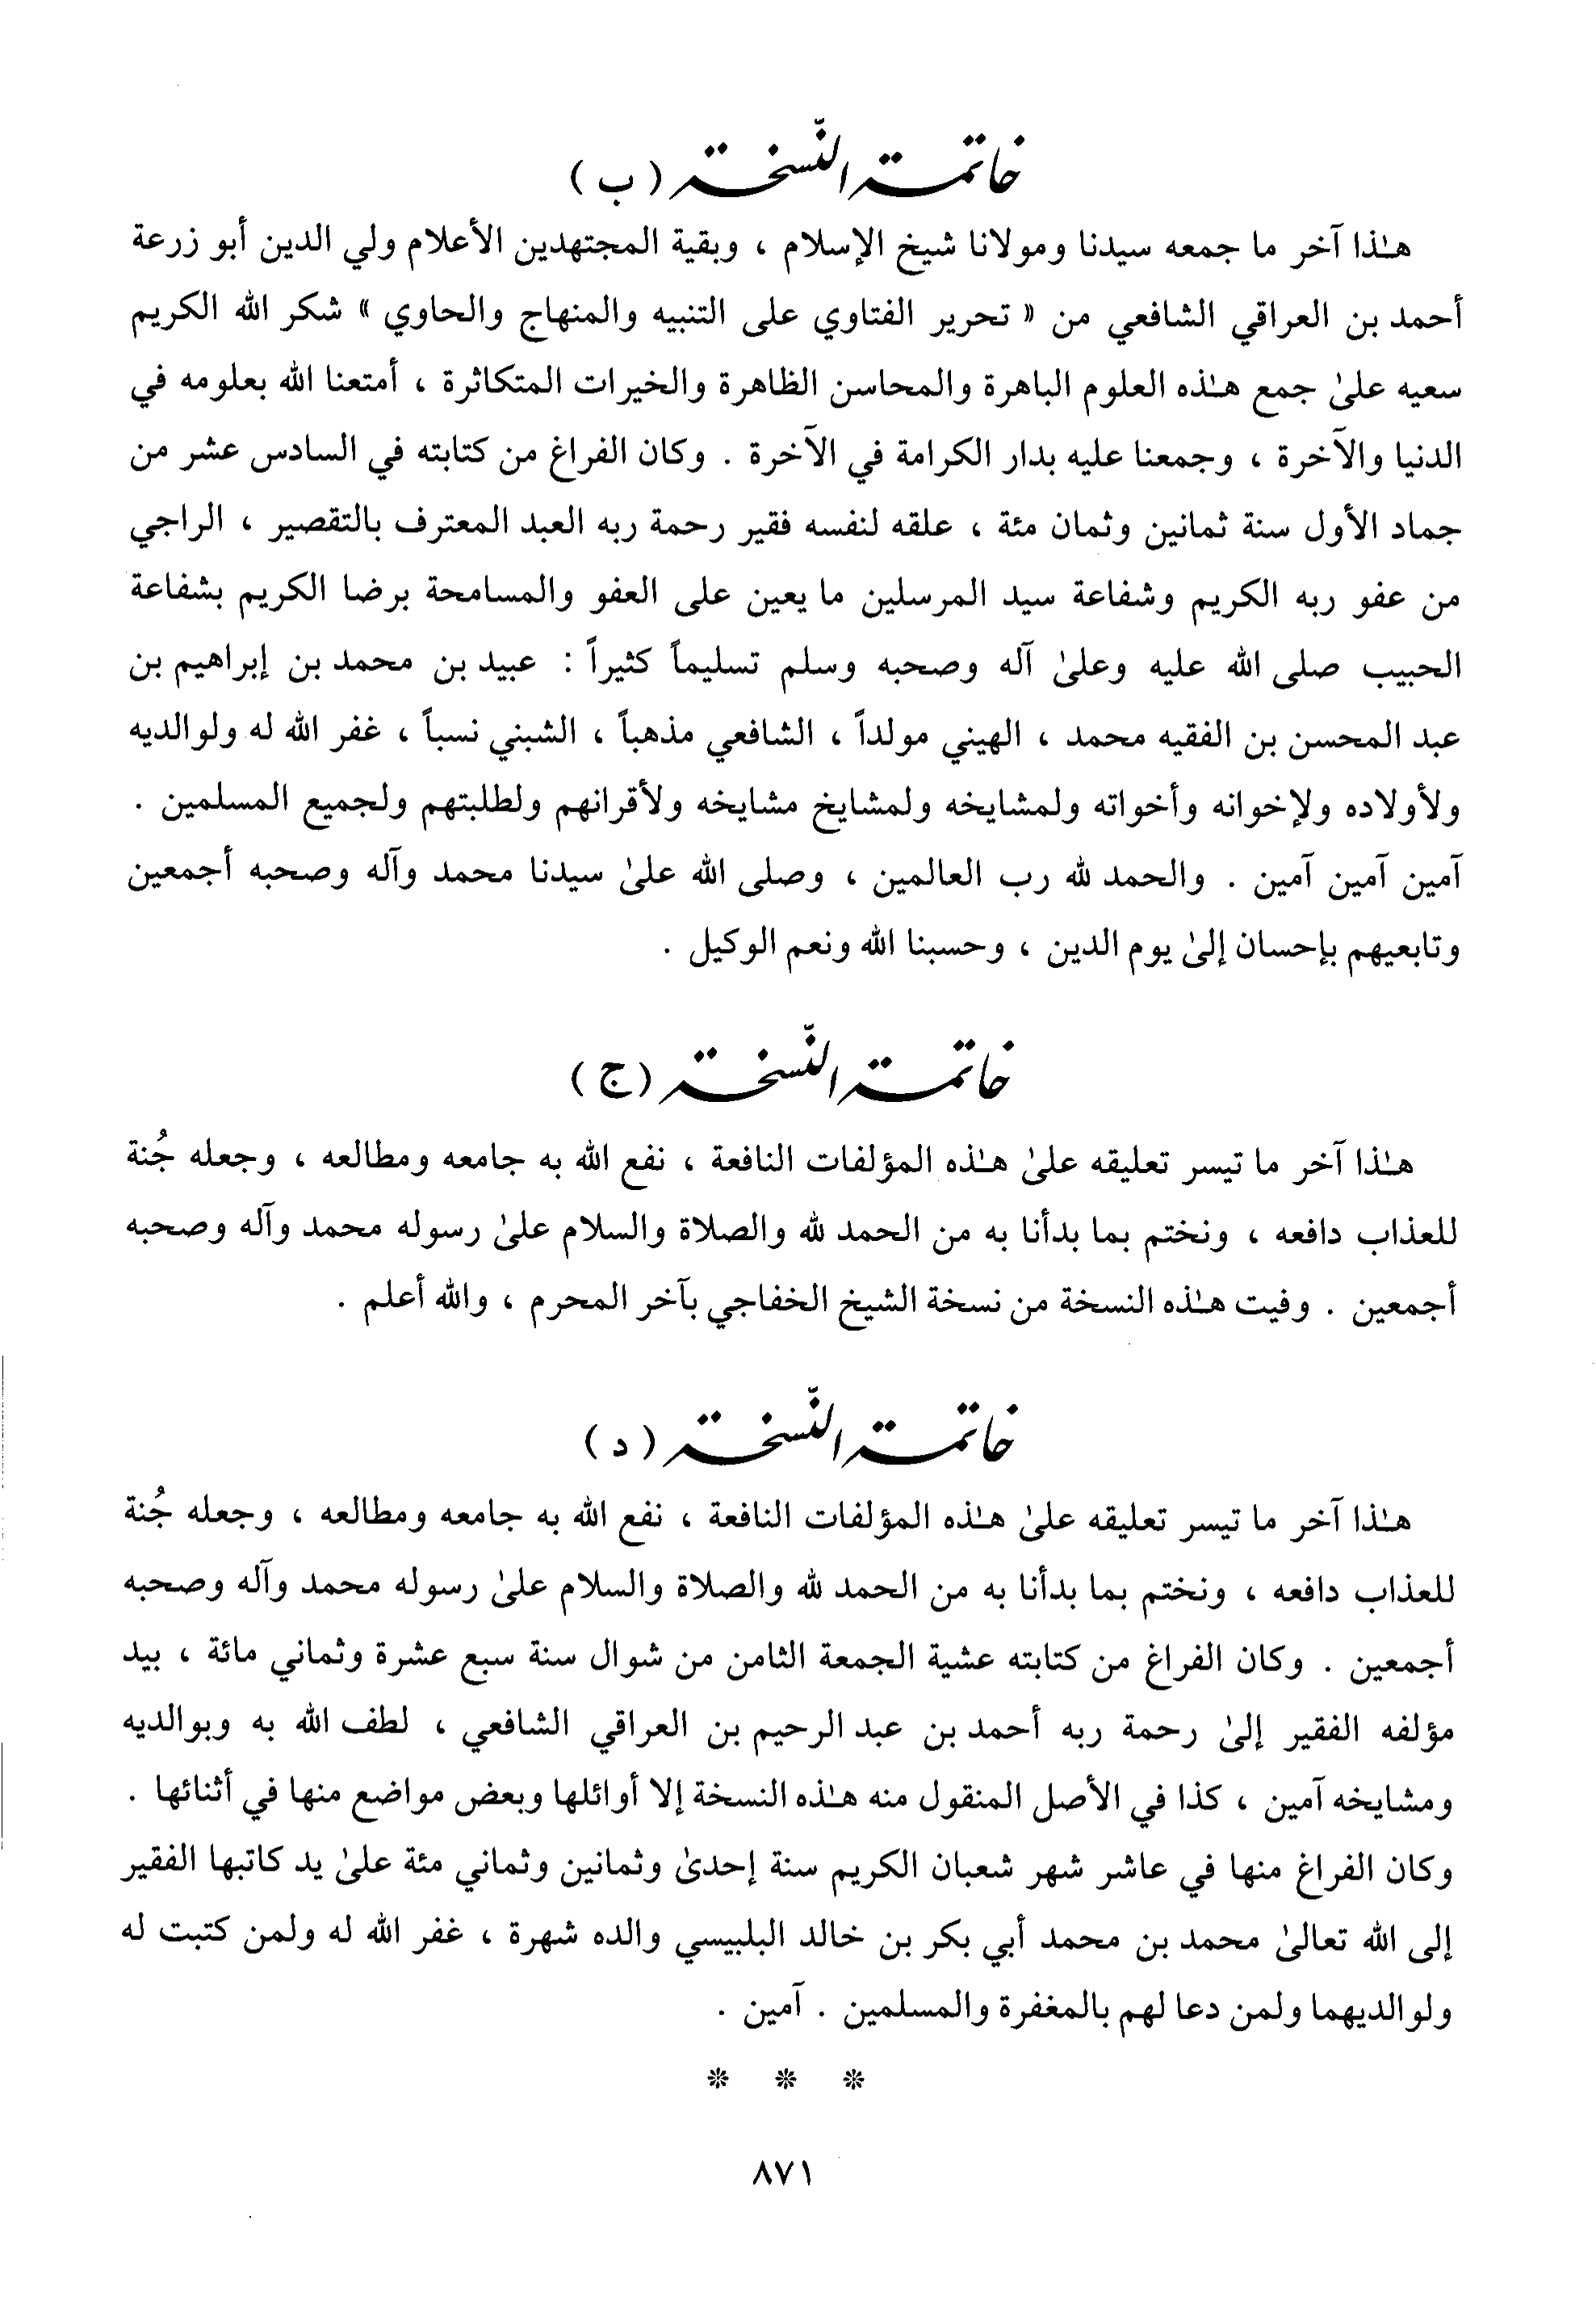 خاتمة النّسخة ( ب )
هـٰذا آخر ما جمعه سيدنا ومولانا شيخ الإسلام ، وبقية المجتهدين الأعلام ولي الدين أبو زرعة
أحمد بن العراقي الشافعي من « تحرير الفتاوي على التنبيه والمنهاج والحاوي » شكر الله الكريم
سعيه علىٰ جمع هـٰذه العلوم الباهرة والمحاسن الظاهرة والخيرات المتكاثرة ، أمتعنا الله بعلومه في
الدنيا والآخرة ، وجمعنا عليه بدار الكرامة في الآخرة . وكان الفراغ من كتابته في السادس عشر من
جماد الأول سنة ثمانين وثمان مئة ، علقه لنفسه فقير رحمة ربه العبد المعترف بالتقصير ، الراجي
من عفو ربه الكريم وشفاعة سيد المرسلين ما يعين على العفو والمسامحة برضا الكريم بشفاعة
الحبيب صلى الله عليه وعلىٰ آله وصحبه وسلم تسليماً كثيراً : عبيد بن محمد بن إبراهيم بن
عبد المحسن بن الفقيه محمد ، الهيني مولداً ، الشافعي مذهباً ، الشبني نسباً ، غفر الله له ولوالديه
ولأولاده ولإخوانه وأخواته ولمشايخه ولمشايخ مشايخه ولأقرانهم ولطلبتهم ولجميع المسلمين .
آمين آمين آمين . والحمد لله رب العالمين ، وصلى الله علىٰ سيدنا محمد وآله وصحبه أجمعين
وتابعيهم بإحسان إلىٰ يوم الدين ، وحسبنا الله ونعم الوكيل .
خاتمة النّسخة ( ج )
هـٰذا آخر ما تيسر تعليقه علىٰ هـٰذه المؤلفات النافعة ، نفع الله به جامعه ومطالعه ، وجعله جُنة
للعذاب دافعه ، ونختم بما بدأنا به من الحمد لله والصلاة والسلام علىٰ رسوله محمد وآله وصحبه
أجمعين . وفيت هـٰذه النسخة من نسخة الشيخ الخفاجي بآخر المحرم ، والله أعلم .
خاتمة النّسخة ( د )
هـٰذا آخر ما تيسر تعليقه علىٰ هـٰذه المؤلفات النافعة ، نفع الله به جامعه ومطالعه ، وجعله جُنة
للعذاب دافعه ، ونختم بما بدأنا به من الحمد لله والصلاة والسلام علىٰ رسوله محمد وآله وصحبه
أجمعين . وكان الفراغ من كتابته عشية الجمعة الثامن من شوال سنة سبع عشرة وثماني مائة ، بيد
مؤلفه الفقير إلىٰ رحمة ربه أحمد بن عبد الرحيم بن العراقي الشافعي ، لطف الله به وبوالديه
ومشايخه آمين ، كذا في الأصل المنقول منه هـٰذه النسخة إلا أوائلها وبعض مواضع منها في أثنائها .
وكان الفراغ منها في عاشر شهر شعبان الكريم سنة إحدىٰ وثمانين وثماني مئة علىٰ يد كاتبها الفقير
إلى الله تعالىٰ محمد بن محمد أبي بكر بن خالد البلبيسي والده شهرة ، غفر الله له ولمن كتبت له
ولوالديهما ولمن دعا لهم بالمغفرة والمسلمين . آمين .
* * *
٨٧١